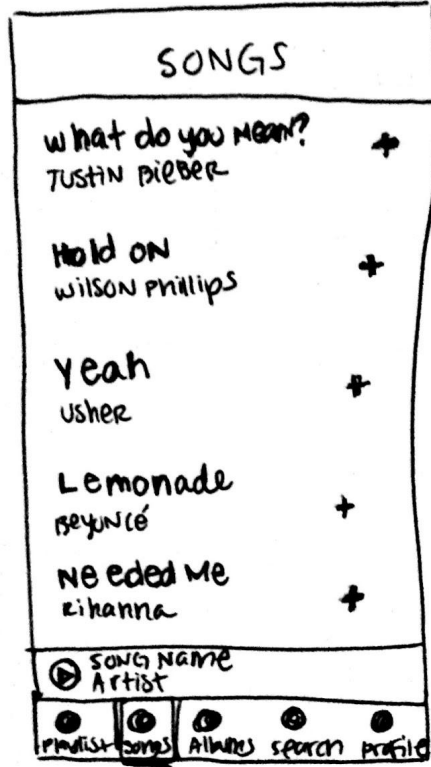 SONGS
What do you MEAN?
JUSTIN BIEBER
Hold ON
WILSON PHILLIPS
Yeah
USHER
Lemonade
BEYONCÉ
NEEDED ME
Rihanna
SONG Name
Artist
Playlist Songs Albums search profile